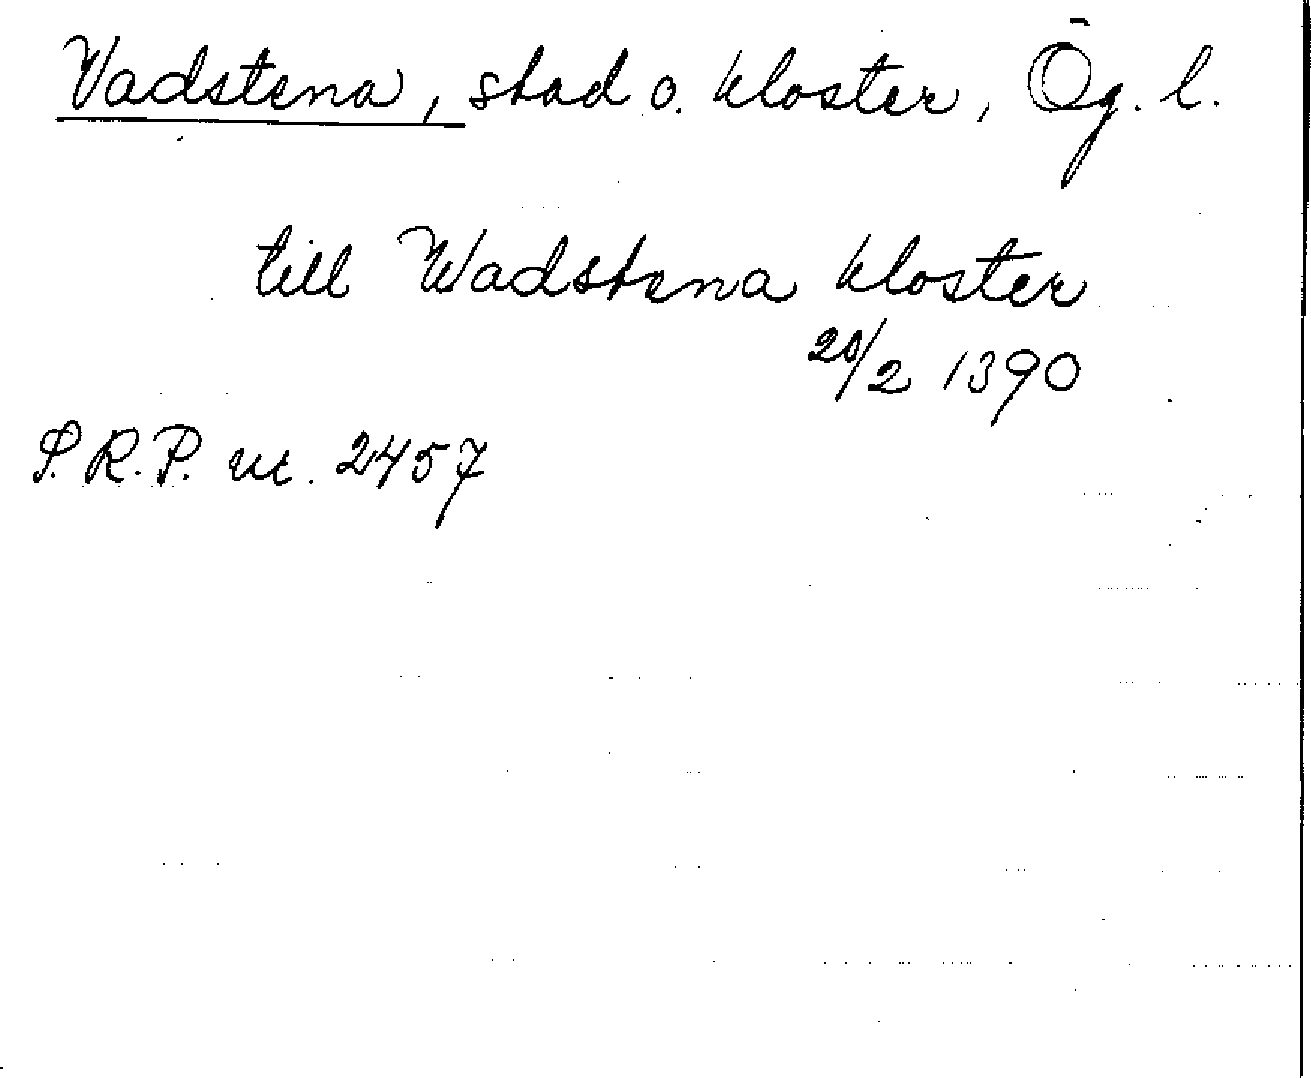 Vadstena, stad o. kloster, Ög. l.
till Wadstena kloster
20/2 1390
S.R.P. nr. 2457